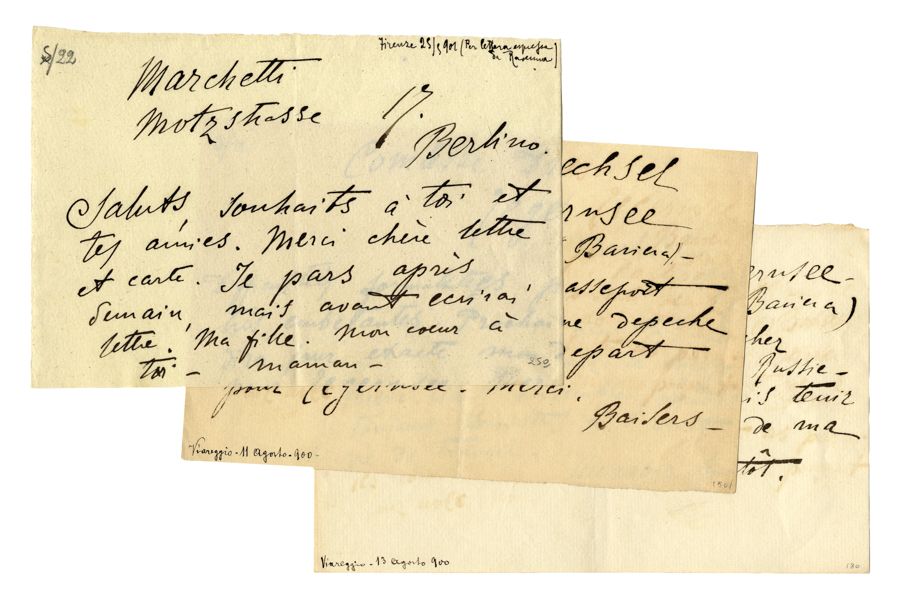 S/22
Firenze 25/5 901 (Per lettera espressa
da Ravenna)
Marchetti
Motzstrasse 17.
Berlino.
Saluts, souhaits à toi et
tes amies. Merci chère lettre
et carte. Je pars après
demain, mais avant ecrirai
lettre. Ma fille. Mon coeur à
toi – maman –
259
echsel
rnsee
Baviera)–
assepost
ne depeche
depart
pour Tegernsee. Merci.
Baisers –
Viareggio - 11 Agosto - 900 -
ernsee –
Baviera)
cher
Russie –
is tenir
de ma
tôt.
Viareggio - 13 Agosto 900
180